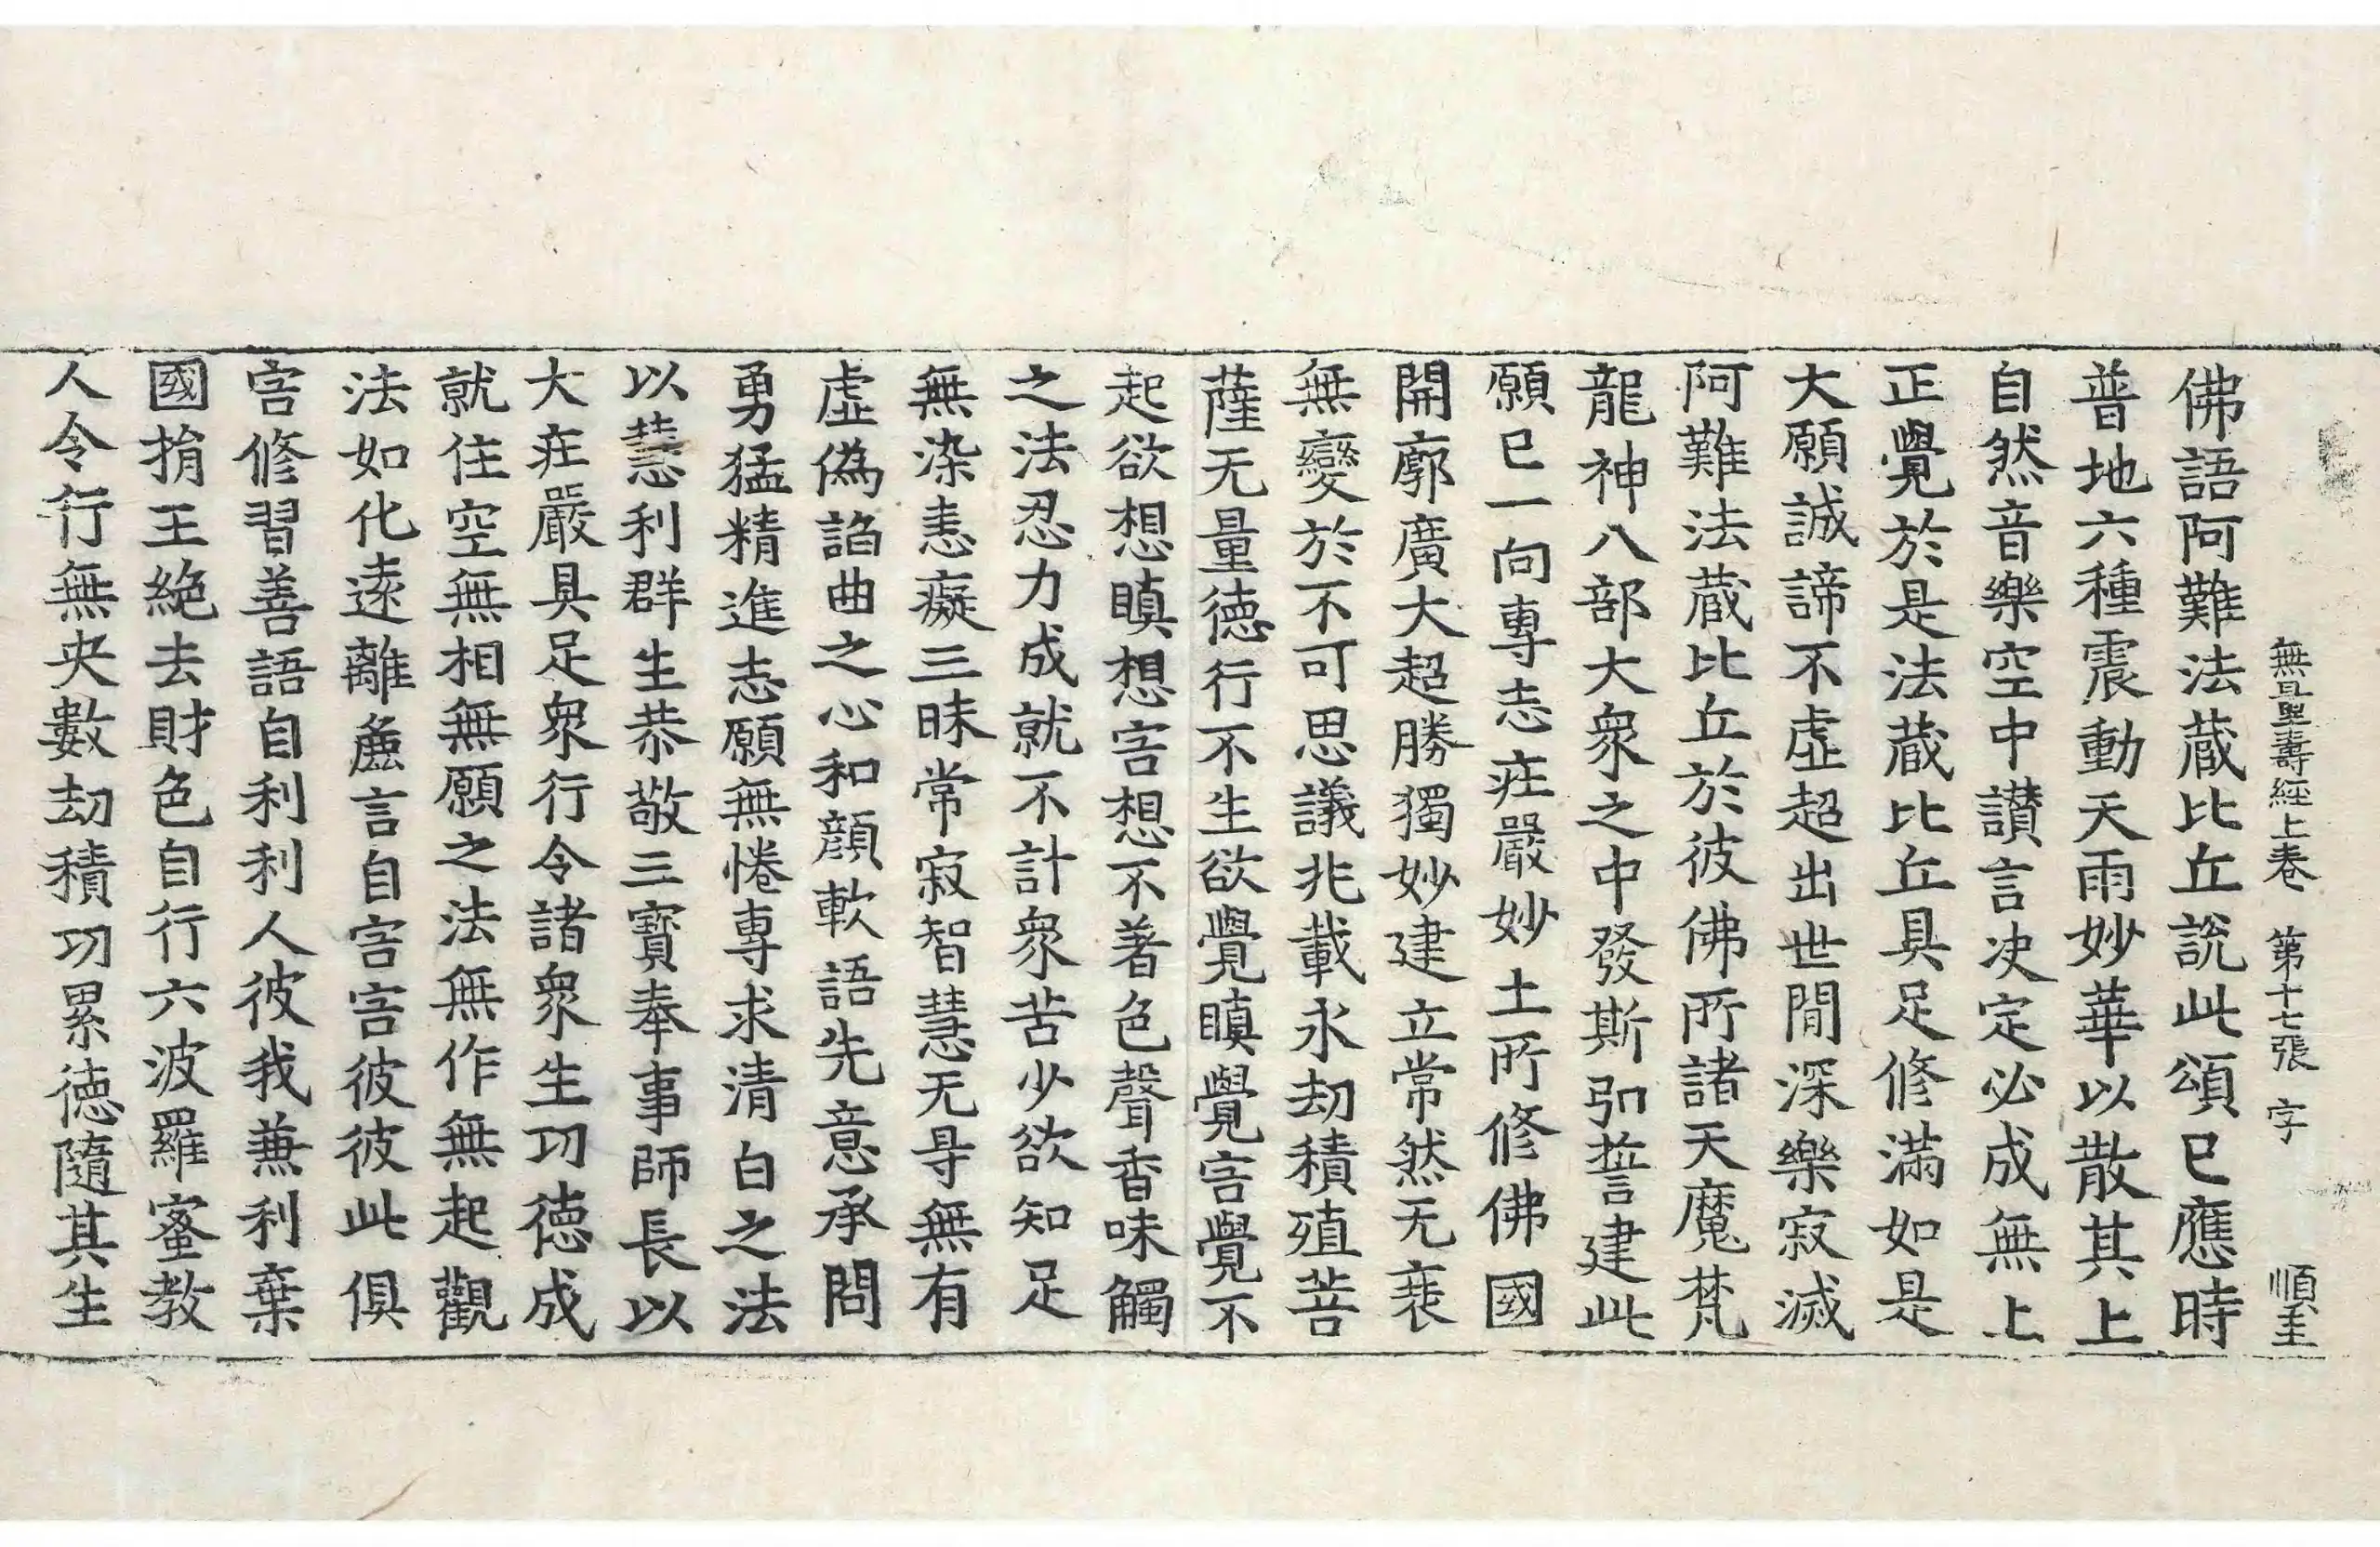 無量壽經上卷 第十七張 字 順圭
佛語阿難法蔵比丘說此頌已應時
普地六種震動天雨妙華以散其上
自然音樂空中讃言决定必成無上
正覺於是法蔵比丘具足修滿如是
大願誠諦不虛超出世間深樂寂滅
阿難法蔵比丘於彼佛所諸天魔梵
龍神八部大衆之中發斯弘誓建此
願已一向專志莊嚴妙土所修佛國
開廓廣大超勝獨妙建立常然无衰
無變於不可思議兆載永劫積殖菩
薩无量德行不生欲覺瞋覺害覺不
起欲想瞋想害想不著色聲香味觸
之法忍力成就不計衆苦少欲知足
無染恚癡三昧常寂智慧无㝵無有
虛僞諂曲之心和顔軟語先意承問
勇猛精進志願無惓專求清白之法
以慧利群生恭敬三寶奉事師長以
大莊嚴具足衆行令諸衆生功德成
就住空無相無願之法無作無起觀
法如化遠離麁言自害害彼彼此俱
害修習善語自利利人彼我兼利棄
國捐王絶去財色自行六波羅蜜教
人令行無央數劫積功累德隨其生